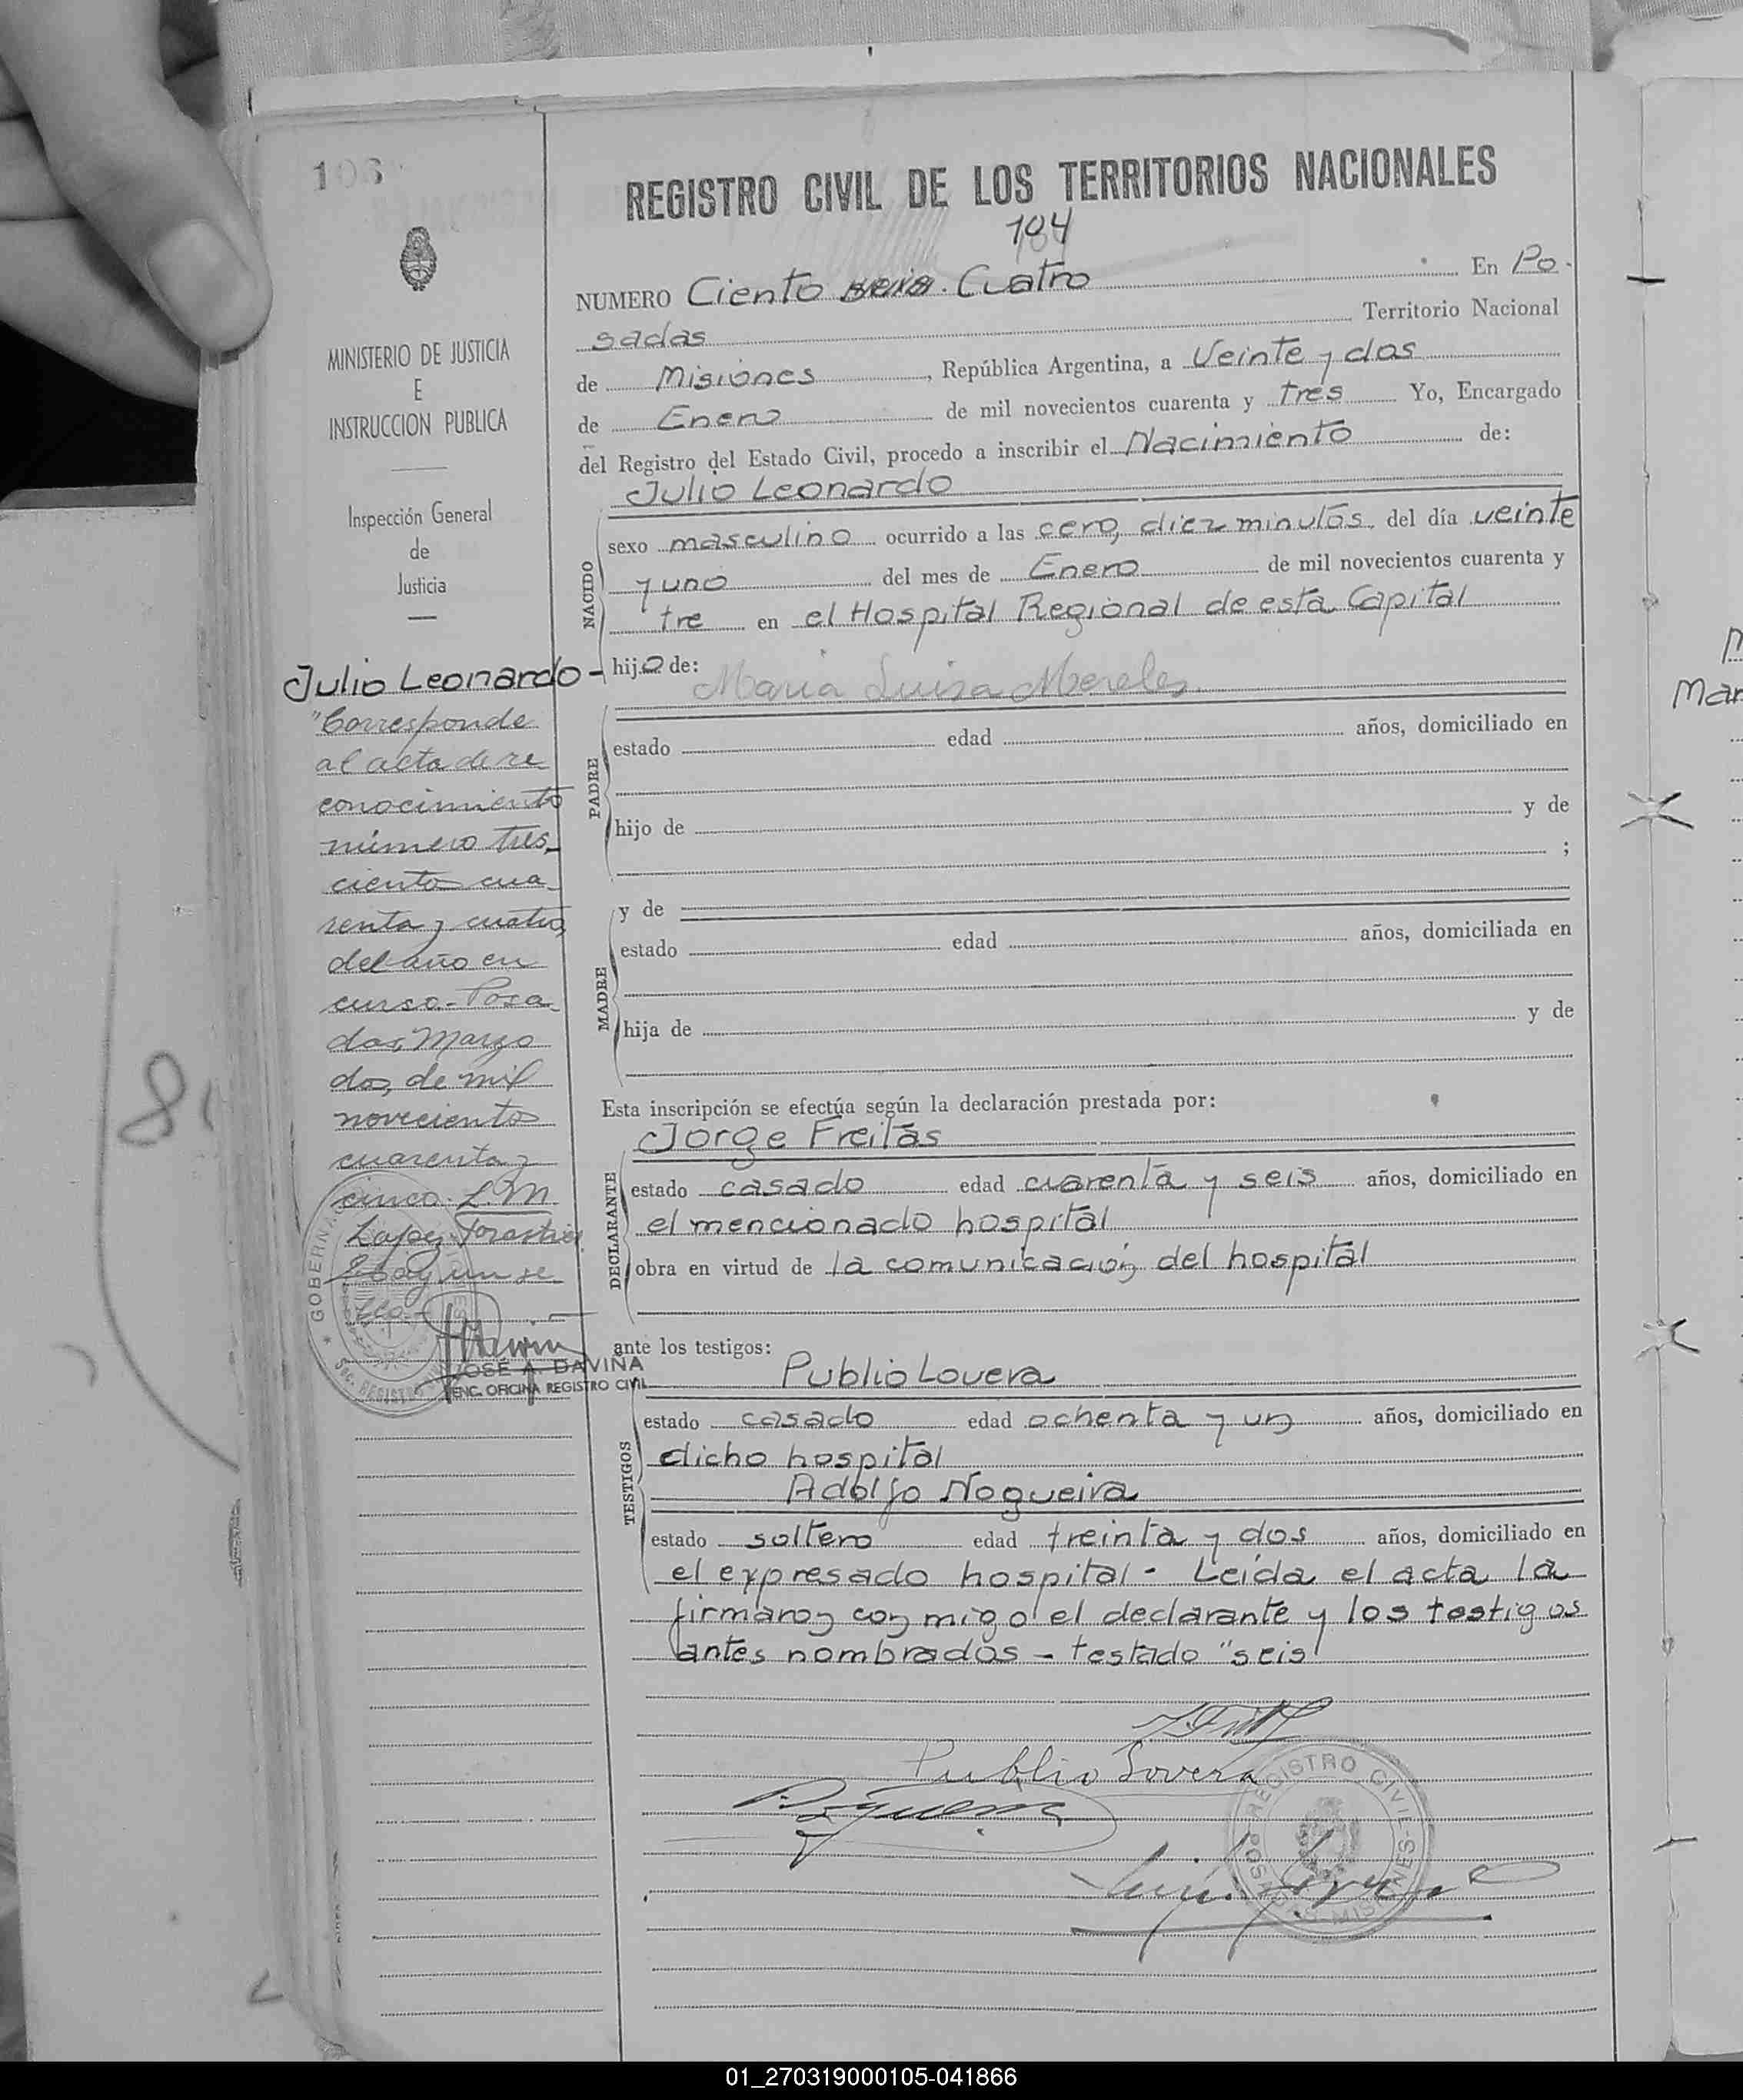 106
REGISTRO CIVIL DE LOS TERRITORIOS NACIONALES
104
NUMERO Ciento seis. Cuatro En Po-
sadas Territorio Nacional
de Misiones, República Argentina, a Veinte y dos
de Enero de mil novecientos cuarenta y tres Yo, Encargado
del Registro del Estado Civil, procedo a inscribir el Nacimiento de:
Julio Leonardo
NACIDO
sexo masculino ocurrido a las cero, diez minutos, del día veinte
y uno del mes de Enero de mil novecientos cuarenta y
tre en el Hospital Regional de esta Capital
hijo de: Maria Luisa Mereles
PADRE
estado edad años, domiciliado en
hijo de y de
;
y de
MADRE
estado edad años, domiciliada en
hija de y de
Esta inscripción se efectúa según la declaración prestada por:
Jorge Freitas
DECLARANTE
estado casado edad cuarenta y seis años, domiciliado en
el mencionado hospital
obra en virtud de la comunicación del hospital
ante los testigos:
Publio Lovera
TESTIGOS
estado casado edad ochenta y un años, domiciliado en
dicho hospital
Adolfo Nogueira
estado soltero edad treinta y dos años, domiciliado en
el expresado hospital - Leída el acta la
firmaron con migo el declarante y los testigos
antes nombrados - testado "seis"
Publio Lovera
REGISTRO CIVIL
POSADAS MISIONES
MINISTERIO DE JUSTICIA
E
INSTRUCCION PUBLICA
Inspección General
de
Justicia
Julio Leonardo -
"Corresponde
al acta de re
conocimiento
número tres,
ciento cua
renta y cuatro,
del año en
curso.- Posa
das, Marzo
dos, de mil
novecientos
cuarenta y
cinco. L. M
Lopez Forastier
Hay un se
llo.-
GOBERNA
JOSÉ A. DAVIÑA
ENC. OFICINA REGISTRO CIVIL
Mar
01_270319000105-041866